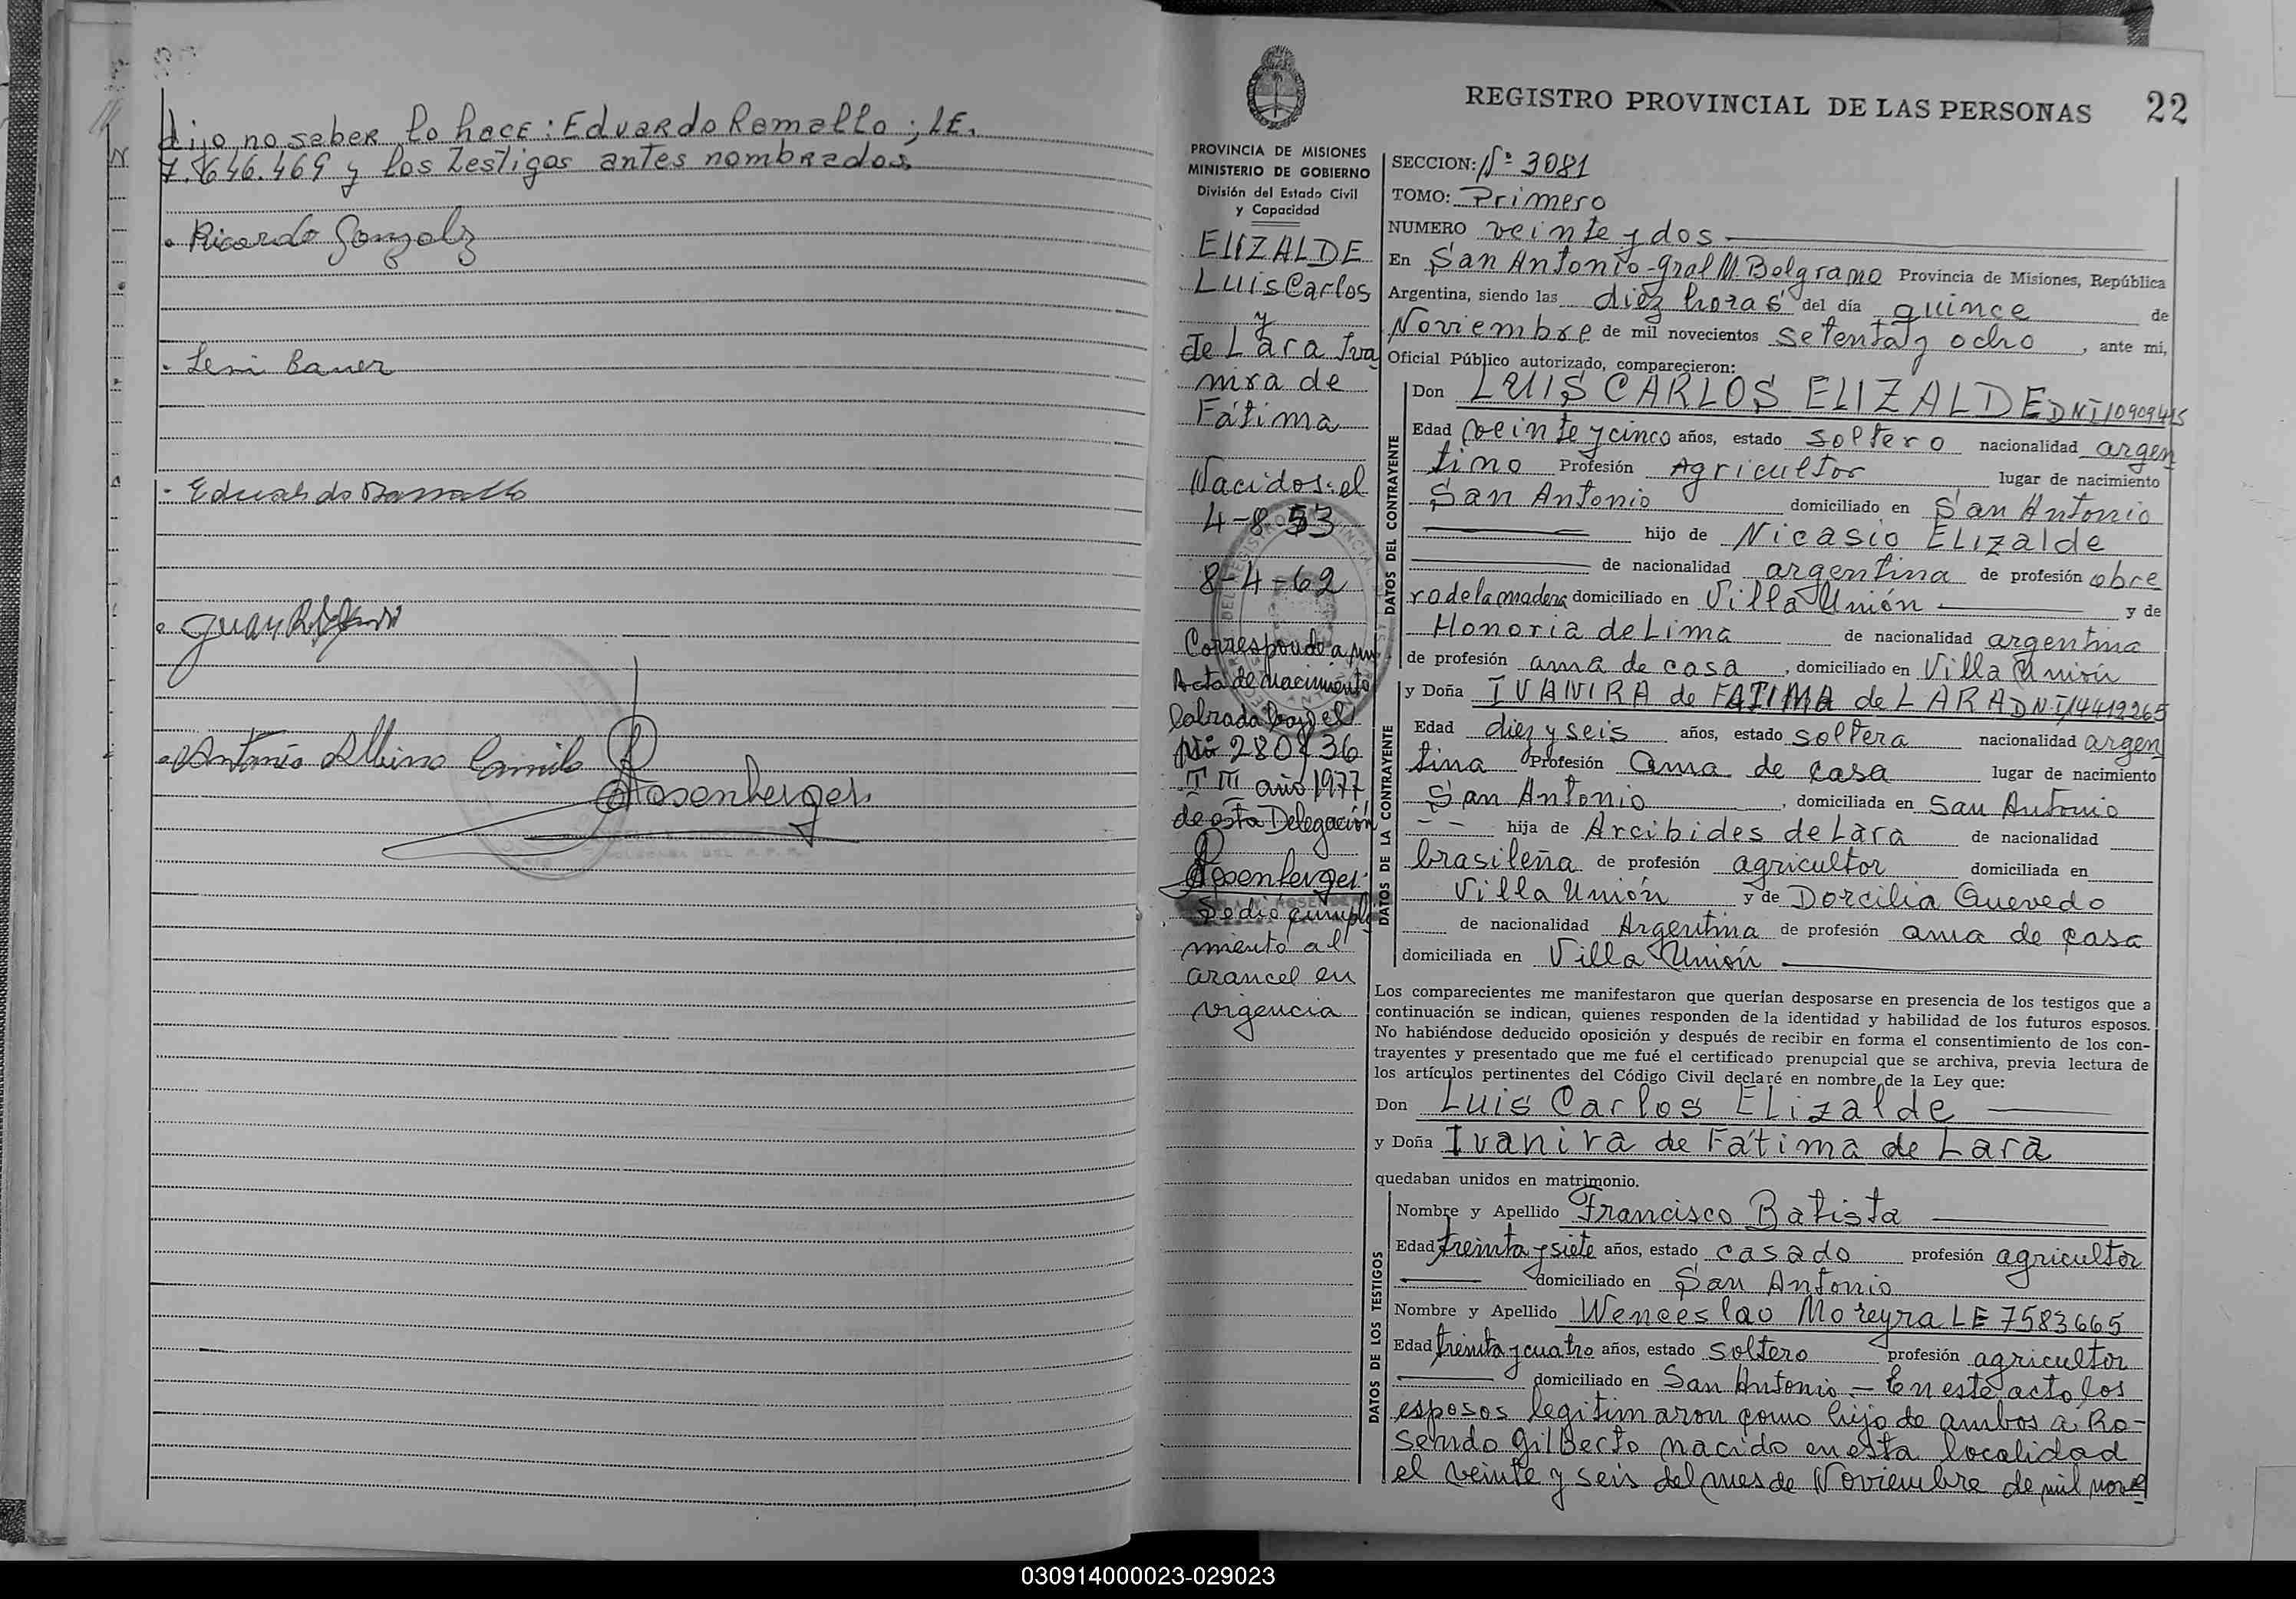 dijo no saber lo hace: Eduardo Ramallo; LE.
7.646.469 y los testigos antes nombrados
Ricardo Gonzalz
Leni Bauer
Eduardo Ramallo
Juan
Antonio Albino Camilo
Rosenberger
REGISTRO PROVINCIAL DE LAS PERSONAS 22
PROVINCIA DE MISIONES
MINISTERIO DE GOBIERNO
División del Estado Civil
y Capacidad
ELIZALDE
Luis Carlos
y
de Lara Iva
nira de
Fátima
Nacidos: el
4-8-53
8-4-62
Corresponde a un
Acta de nacimiento
labrada bajo el
Nº 280 f 36
T III año 1977
de esta Delegación
Rosenberger
Se dió cumpli
miento al
arancel en
vigencia
SECCION: Nº 3081
TOMO: Primero
NUMERO veinte y dos
En San Antonio-Gral M. Belgrano Provincia de Misiones, República
Argentina, siendo las diez horas del día quince de
Noviembre de mil novecientos setenta y ocho, ante mi,
Oficial Público autorizado, comparecieron:
DATOS DEL CONTRAYENTE
Don LUIS CARLOS ELIZALDE DNI 10909415
Edad veinte y cinco años, estado soltero nacionalidad argen
tino Profesión Agricultor lugar de nacimiento
San Antonio domiciliado en San Antonio
hijo de Nicasio Elizalde
de nacionalidad argentina de profesión obre
ro de la madera domiciliado en Villa Unión y de
Honoria de Lima de nacionalidad argentina
de profesión ama de casa, domiciliado en Villa Unión
DATOS DE LA CONTRAYENTE
y Doña IVANIRA de FATIMA de LARA DNI 14412265
Edad diez y seis años, estado soltera nacionalidad argen
tina Profesión Ama de casa lugar de nacimiento
San Antonio, domiciliada en San Antonio
hija de Arcibides de Lara de nacionalidad
brasileña de profesión agricultor domiciliada en
Villa Unión y de Dorcilia Quevedo
de nacionalidad Argentina de profesión ama de casa
domiciliada en Villa Unión
Los comparecientes me manifestaron que querían desposarse en presencia de los testigos que a
continuación se indican, quienes responden de la identidad y habilidad de los futuros esposos.
No habiéndose deducido oposición y después de recibir en forma el consentimiento de los con-
trayentes y presentado que me fué el certificado prenupcial que se archiva, previa lectura de
los artículos pertinentes del Código Civil declaré en nombre de la Ley que:
Don Luis Carlos Elizalde
y Doña Ivanira de Fátima de Lara
quedaban unidos en matrimonio.
DATOS DE LOS TESTIGOS
Nombre y Apellido Francisco Batista
Edad treinta y siete años, estado casado profesión agricultor
domiciliado en San Antonio
Nombre y Apellido Wenceslao Moreyra LE 7583665
Edad treinta y cuatro años, estado soltero profesión agricultor
domiciliado en San Antonio.- En este acto los
esposos legitimaron como hijo de ambos a Ro-
sendo Gilberto nacido en esta localidad
el veinte y seis del mes de Noviembre de mil nove
030914000023-029023